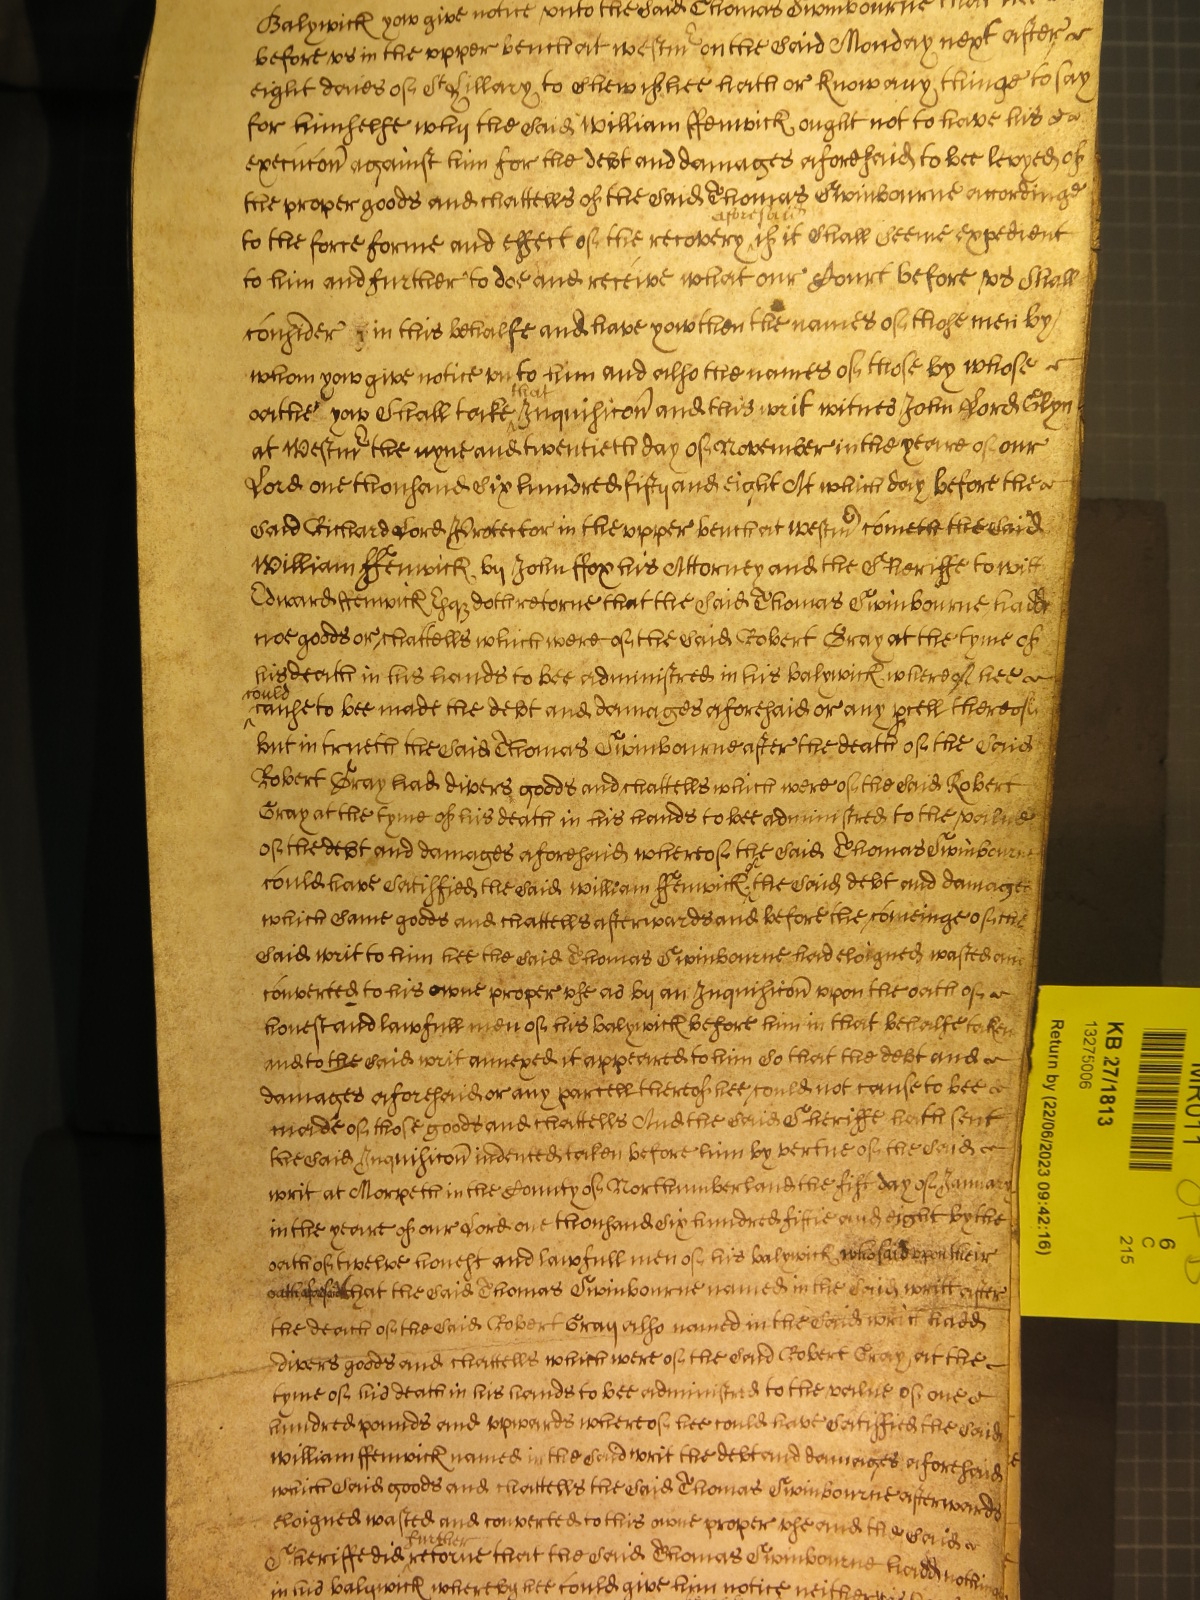 Balywick yow give notice vnto the said Thomas Swinbourne that hee
before vs in the vpper bench at westmr on the said Monday next after
eight daies of St Hillary to shew if hee hath or know any thinge to say
for himselfe why the said William ffenwick ought not to have his
execucon against him for the debt and damages aforesaid to bee levyed of
the proper goods and chattells of the said Thomas Swinbourne accordinge
aforesaid
to the force forme and effect of the recovery if it shall seeme expedient
to him and further to doe and receive what our Court before vs shall
consider in this behalfe and have yow then the names of those men by
whom yow give notice vnto him and also the names of those by whose
that
oathe yow shall take Inquisicon and this writ witnes John Lord Glyn
at Westmr the nyne and twentieth day of November in the yeare of our
Lord one thousand six hundred fifty and eight At which day before the
said Richard Lord Protector in the vpper bench at westmr cometh the said
William ffenwick by John ffox his Attorney and the Sheriffe to witt
Edward ffenwick Esqz doth retorne that the said Thomas Swinbourne hadd
noe goods or chattells which were of the said Robert Gray at the tyme of
his death in his hands to bee administred in his balywick whereof hee
could
cause to bee made the debt and damages aforesaid or any pcell thereof
but in trueth the said Thomas Swinbourne after the death of the said
Robert Gray had divers goods and chattells which were of the said Robert
Gray at the tyme of his death in his hands to bee administred to the value
of the debt and damages aforesaid whereof the said Thomas Swinbourne
could have satisfied the said william ffenwick of the said debt and damages
which same goods and chattells afterwards and before the comeinge of the
said writ to him hee the said Thomas Swinbourne had eloigned wasted and
converted to his owne proper vse as by an Inquisicon vpon the oath of
honest and lawfull men of his balywick before him in that behalfe taken
and to the said writ annexed it appeared to him so that the debt and
damages aforesaid or any parcell thereof hee could not cause to bee
made of those goods and chattells And the said Sheriffe hath sent
the said Inquisicon indented taken before him by vertue of the said
writ at Morpeth in the County of Northumberland the fift day of January
in the yeare of our Lord one thousand six hundred fiftie and eight by the
oath of twelve honest and lawfull men of his balywick who said vpon their
oath aforesaid that the said Thomas Swinbourne named in the said writt after
the death of the said Robert Gray also named in the said writ hadd
divers goods and chattells which were of the said Robert Gray at the
tyme of his death in his hands to bee administred to the value of one
hundred pounds and vpwards whereof hee could have satisfied the said
william ffenwick named in the said writ the debt and damages aforesaid
which said goods and chattells the said Thomas Swinbourne afterwards
eloigned wasted and converted to his owne proper vse and the said
further
Sheriffe did retorne that the said Thomas Swinbourne hadd nothing
in his balywick whereby hee could give him notice neither
KB 27/1813
13275006
Return by (22/06/2023 09:42:16)
6
C
215